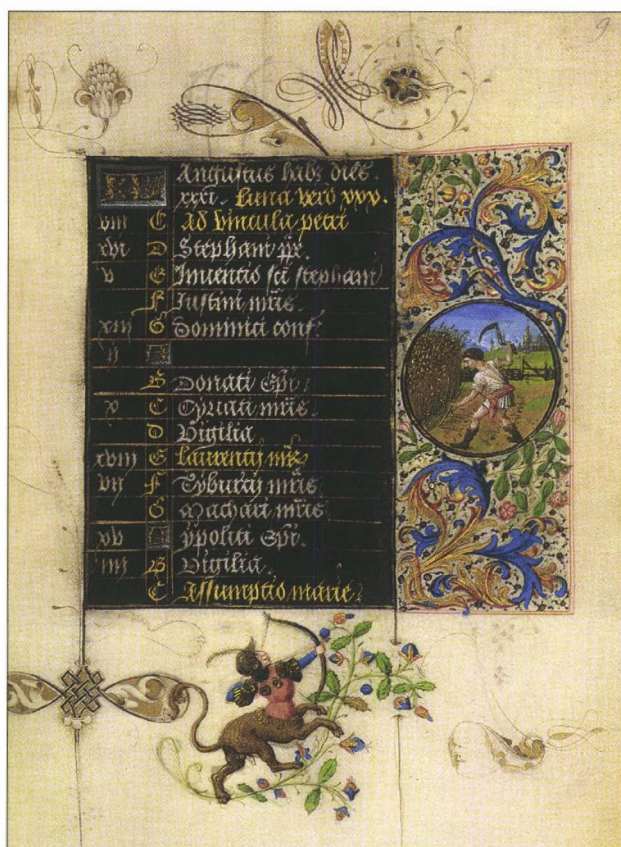 9
KL Augustus hab; dies.
xxxi. Luna vero xxx.
viii C Ad vincula petri
xvi D Stephani pp.
v E Inuentio sci stephani
F Justini mris.
xiij G Dominici conf.
ij A
B Donati Epi.
x C Cyriaci mris.
D Vigilia
xviij E Laurentij mris
vij F Tyburcij mris
G Machari mris
xv A ypoliti Epi.
iiij B Vigilia.
C Assumptio marie.